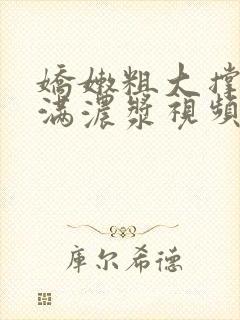 嬌嫩粗大撐
滿濃漿視頻
庫尔希德